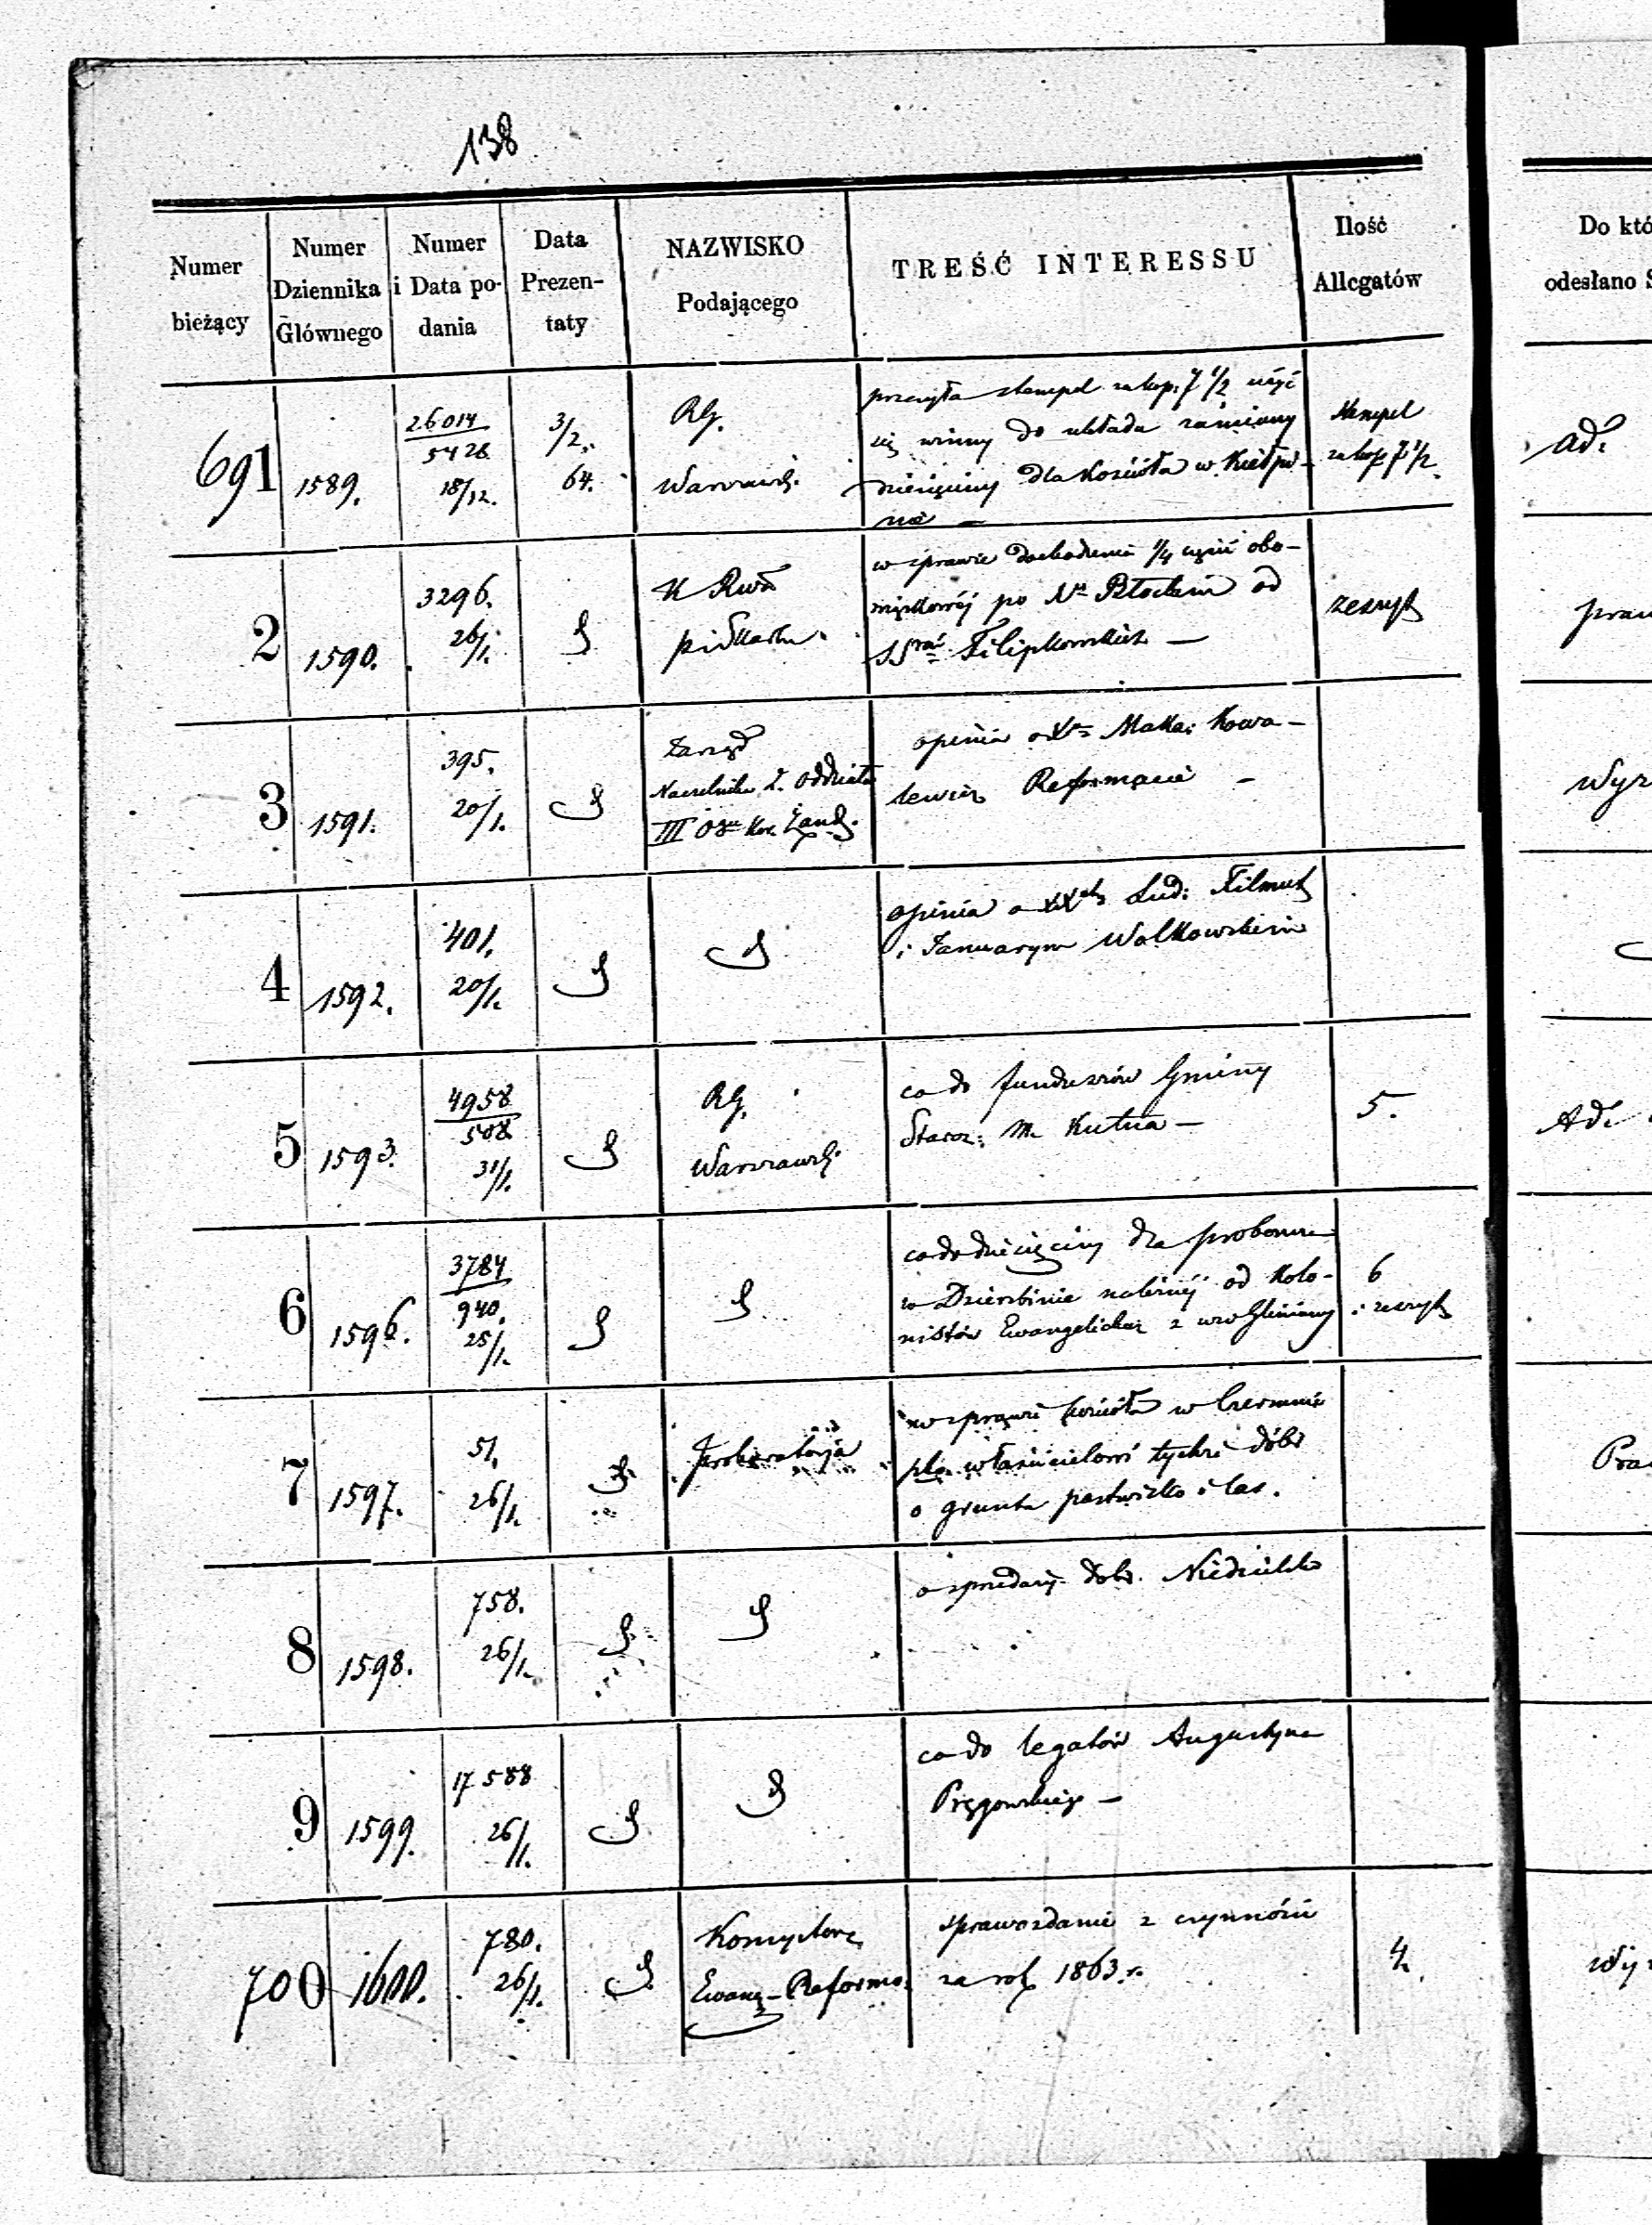 138
Numer bieżący
Numer Dziennika Głównego
Numer i Data podania
Data Prezentaty
NAZWISKO Podającego
TREŚĆ INTERESSU
Ilość Allegatów
Do któ
odesłano S
691 1589. 26014/5428 18/12. 3/2. 64. RG. Warszaws.
przesyła stempel za kop: 7 1/2 użyć
się winny do układu zamiany
dziesięciny dla Kościoła w
Stempel
za kop 7 1/2
Ad.
2 1590. 3296. 26/1.
w sprawie dochodzenia 1/4 części obo-
po Płockim od
Filipkowskich —
zeszyt
praw
3 1591. 395. 20/1.
Zarząd
Naczelnika 2. Oddziału
III Żand.
opinia o Kowa-
lewicz Reformacie —
Wyz
4 1592. 401. 20/1.
opinia o Lud:
i Januarym Wolkowskim
5 1593. 4958/508 31/1. RG. Warszaws.
co do funduszów Gminy
Staroz: m. Kutna —
5.
Ad.
6 1596. 3784/940. 25/1.
co do dziesięciny dla proboszcza
w Dzierzbinie należnéj od Kolo-
nistów Ewangelickich z
6
i zeszyt
7 1597. 51. 26/1. Prokuratorja
w sprawie kościoła w Czermnie
pko właścicielowi tychże dóbr
o grunta pastwisko i las.
Pra
8 1598. 758. 26/1.
o sprzedaży dóbr. Niedzielsko
9 1599. 17588 26/1.
co do legatów Augustyna
Pręgowskiego —
700 1600. 780. 26/1.
Konsystorz
Ewang-Reformo.
sprawozdanie z czynności
za rok 1863 r.
4.
Wyz